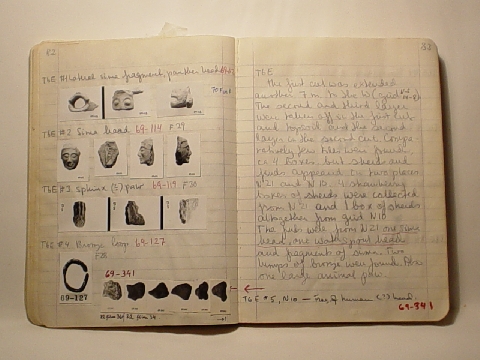 82
T6E #1 Lateral sima fragment, panther head
T6E #2 Sima head 69-114 F 29
T6E #3 Sphinx (?) paw 69-119 F 30
T6E #4 Bronze loop 69-127
69-127
69-341
83
T6E
The first cut was extended
another 7 m. to the W (W grid
The second and third layer
were taken off in the first cut
and topsoil and the second
layer in the second cut. Comparatively few tiles were found
ca 4 boxes, but sherds and
finds appeared in two places
N21 and N10. 4 strawberry
boxes of sherds were collected
from N21 and 1 box of sherds
altogether from grid N10.
The finds were from N21 one sima
head, one water spout head
and fragment of sima. Two
lumps of bronze were found. Also
one large animal paw.
T6E #5, N10 — Frag of human (?) head.
69-341